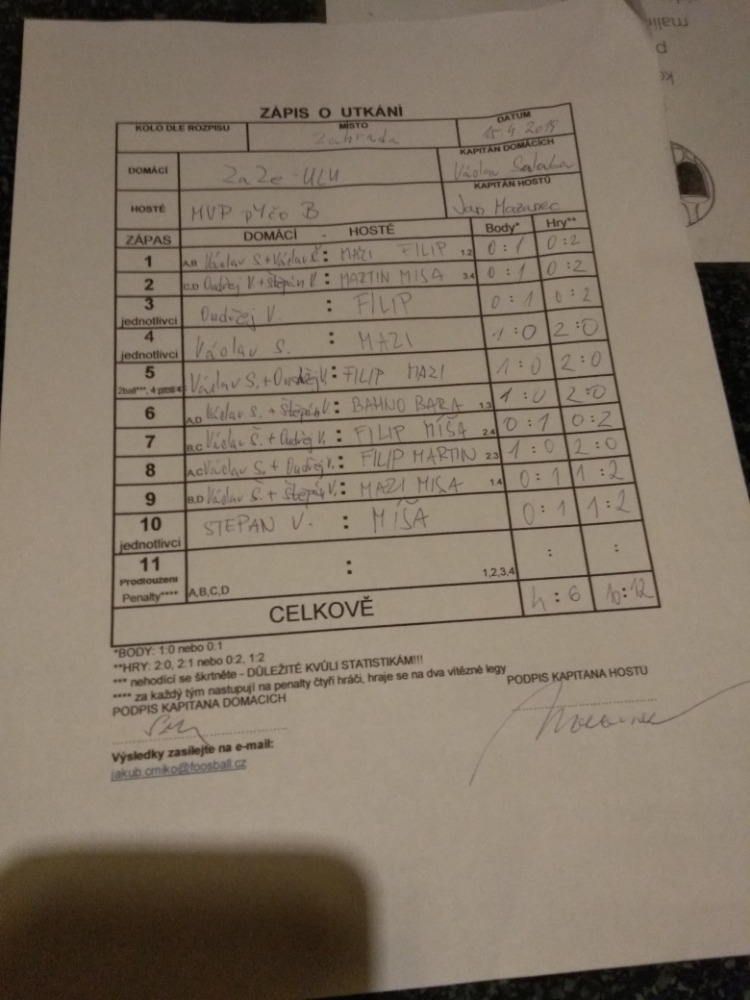 ZÁPIS O UTKÁNÍ
KOLO DLE ROZPISU MÍSTO DATUM
Zahrada 15.4 2019
DOMÁCÍ ZaZe-ULU KAPITÁN DOMÁCÍCH
Václav
HOSTÉ MVP pYčo B KAPITÁN HOSTŮ
Jan
ZÁPAS DOMÁCÍ - HOSTÉ Body* Hry**
1 A,B Václav S.+Václav Š.: MAZI FILIP 1,2 0:1 0:2
2 C,D Ondřej V.+Štěpán V.: MARTIN MISA 3,4 0:1 0:2
3 jednotlivci Ondřej V. : FILIP 0:1 0:2
4 jednotlivci Václav S. : MAZI 1:0 2:0
5 2ball***, 4 proti 4 Václav S.+Ondřej V.: FILIP MAZI 1:0 2:0
6 A,D Václav S. + Štěpán V.: BAHNO BARA 1,3 1:0 2:0
7 B,C Václav Š. + Ondřej V.: FILIP MÍŠA 2,4 0:1 0:2
8 A,C Václav S. + Ondřej V.: FILIP MARTIN 2,3 1:0 2:0
9 B,D Václav Š. + Štěpán V.: MAZI MISA 1,4 0:1 1:2
10 jednotlivci STEPAN V. : MÍŠA 0:1 1:2
11 Prodloužení Penalty**** A,B,C,D : 1,2,3,4 : :
CELKOVĚ 4:6 10:12
*BODY: 1:0 nebo 0:1
**HRY: 2:0, 2:1 nebo 0:2, 1:2
*** nehodící se škrtněte - DŮLEŽITÉ KVŮLI STATISTIKÁM!!!
**** za každý tým nastupují na penalty čtyři hráči, hraje se na dva vítězné legy
PODPIS KAPITANA DOMACICH PODPIS KAPITANA HOSTU
Výsledky zasílejte na e-mail:
jakub.cmiko@foosball.cz